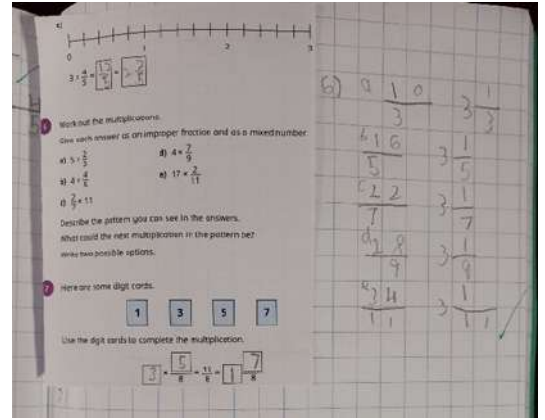 c)
0 1 2 3
3 × 4/5 = 12/5 = 2 2/5
6
Work out the multiplications.
Give each answer as an improper fraction and as a mixed number.
a) 5 × 2/3 d) 4 × 7/9
b) 4 × 4/5 e) 17 × 2/11
c) 2/7 × 11
Describe the pattern you can see in the answers.
What could the next multiplication in the pattern be?
Write two possible options.
7
Here are some digit cards.
1 3 5 7
Use the digit cards to complete the multiplication.
3 × 5/8 = 15/8 = 1 7/8
6) a 10/3 3 1/3
b 16/5 3 1/5
c 22/7 3 1/7
d 28/9 3 1/9
e 34/11 3 1/11